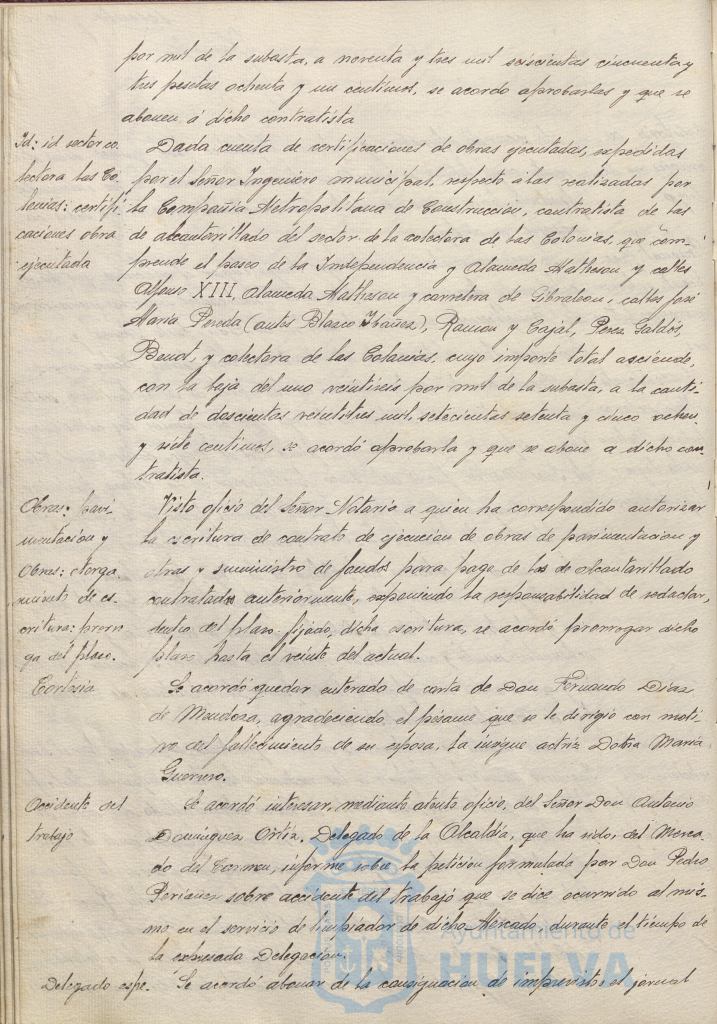 por mil de la subasta, a noventa y tres mil seiscientas cincuenta y
tres pesetas ochenta y un centimos, se acordo aprobarlas y que se
abonen á dicho contratista
Id: id sector co
lectora las Co-
lonias: certifi
caciones obra
ejecutada
Dada cuenta de certificaciones de obras ejecutadas, expedidas
por el Señor Ingeniero municipal, respecto á las realizadas por
la Compañia Metropolitana de Construccion, contratista de las
de alcantarillado del sector de la colectora de las Colonias, que com-
prende el paseo de la Independencia y Alameda Matheson y calles
Alfonso XIII, Alameda Matheson y carretera de Gibraleon, calles José
Maria Pereda (antes Blasco Ibáñez), Ramon y Cajal, Perez Galdós,
Benot, y colectora de las Colonias, cuyo importe total asciende,
con la baja del uno veintiseis por mil de la subasta, a la canti-
dad de doscientas veintitres mil, setecientas setenta y cinco ochen
y siete centimos, se acordó aprobarla y que se abone a dicho con-
tratista.
Obras: pavi-
mentación y
Obras: otorga
miento de es-
critura: prorro
ga del plazo.
Visto oficio del Señor Notario a quien ha correspondido autorizar
la escritura de contrato de ejecución de obras de pavimentacion y
otras y suministro de fondos para pago de las de alcantarillado
contratadas anteriormente, exponiendo la responsabilidad de redactar,
dentro del plazo fijado, dicha escritura, se acordó prorrogar dicho
plazo hasta el veinte del actual.
Cortesia
Se acordó quedar enterado de carta de Don Fernando Diaz
de Mendoza, agradeciendo el pésame que se le dirigió con moti-
vo del fallecimiento de su esposa, la insigne actriz Doña Maria
Guerrero.
Accidente del
trabajo
Se acordó interesar, mediante atento oficio, del Señor Don Antonio
Dominguez Ortiz, Delegado de la Alcaldia, que ha sido, del Merca-
do del Carmen, informe sobre la peticion formulada por Don Pedro
Periañez sobre accidente del trabajo que se dice ocurrido al mis-
mo en el servicio de limpiador de dicho Mercado, durante el tiempo de
la expresada Delegacion.
Delegado espe.
Se acordó abonar de la consignación de imprevistos el jornal
Ayuntamiento de
HUELVA